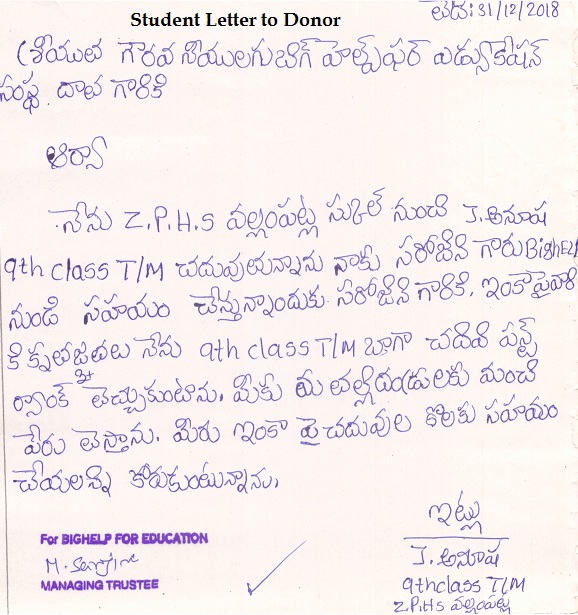 Student Letter to Donor
తేది: 31/12/2018
శ్రీయుత గౌరవ శ్రీయులగు బిగ్ హెల్ప్ ఫర్ ఎడ్యుకేషన్
సంస్థ దాత గారికి
ఆర్యా
నేను Z.P.H.S వల్లంపట్ల స్కుల్ నుంచి J.అనూష
9th class T/M చదువుతున్నాను నాకు సరోజిని గారు BigHElp
నుండి సహయం చేస్తున్నాందుకు సరోజిని గారికి, ఇంకా పైవారి
కి కృతజ్ఞతలు నేను 9th class T/M బాగా చదివి ఫస్ట్
ర్యాంక్ తెచ్చుకుంటాను. మీకు మా తల్లిదండ్రులకు మంచి
పేరు తెస్తాను. మీరు ఇంకా పై చదువుల కొరకు సహయం
చేయలన్ని కోరుకుంటున్నాను.
ఇట్లు
J. అనూష
9th class T/M
Z.P.H.S వల్లంపట్ల
For BIGHELP FOR EDUCATION
MANAGING TRUSTEE